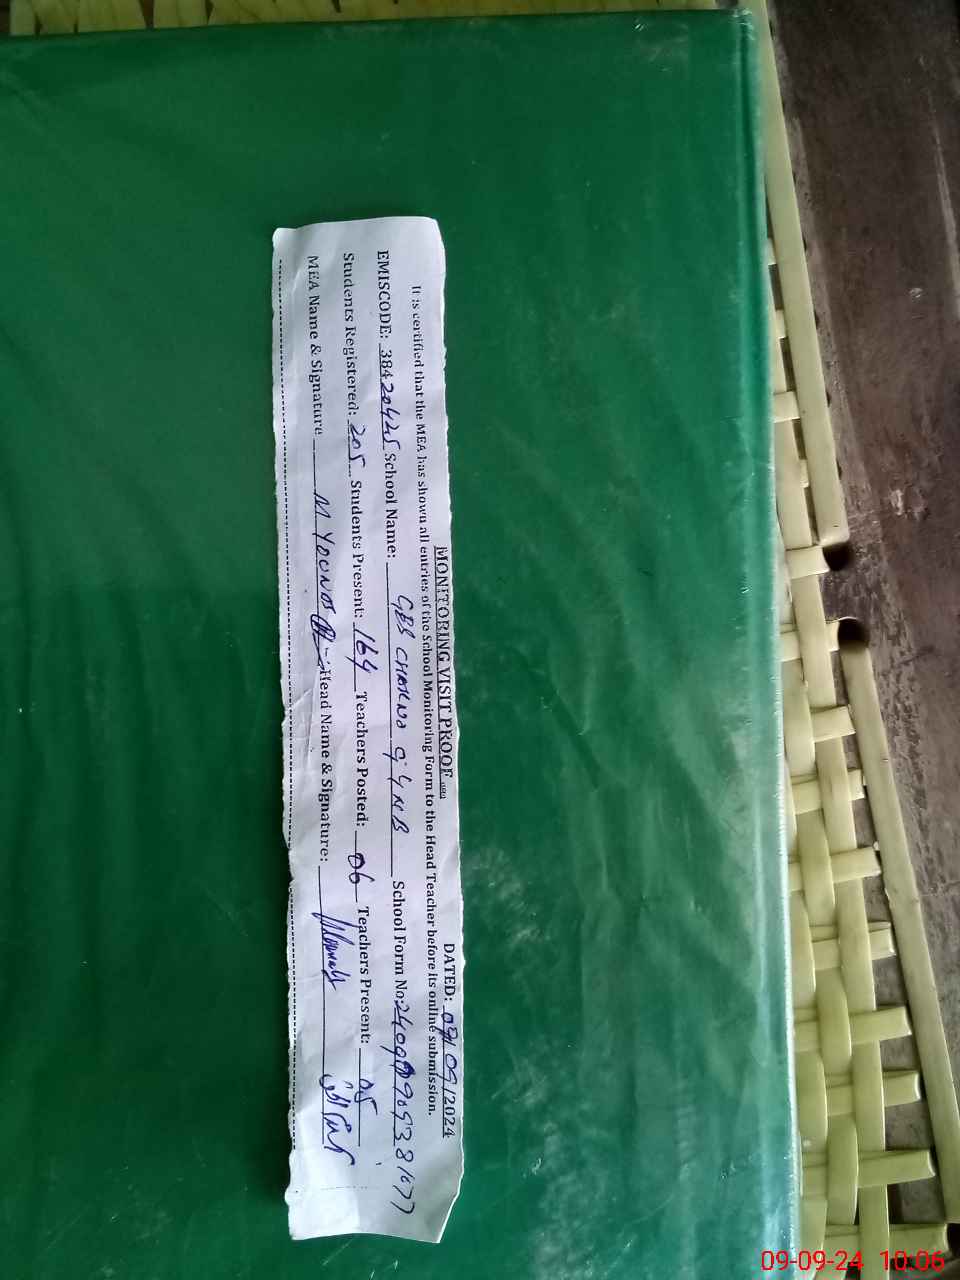 MONITORING VISIT PROOF DATED: 09/09/2024
It is certified that the MEA has shown all entries of the School Monitoring Form to the Head Teacher before its online submission.
EMISCODE: 38420425 School Name: GES CHAK NO 94 NB School Form No:
Students Registered: 205 Students Present: 164 Teachers Posted: 06 Teachers Present: 05
MEA Name & Signature M YOUNAS Head Name & Signature:
09-09-24 10:06